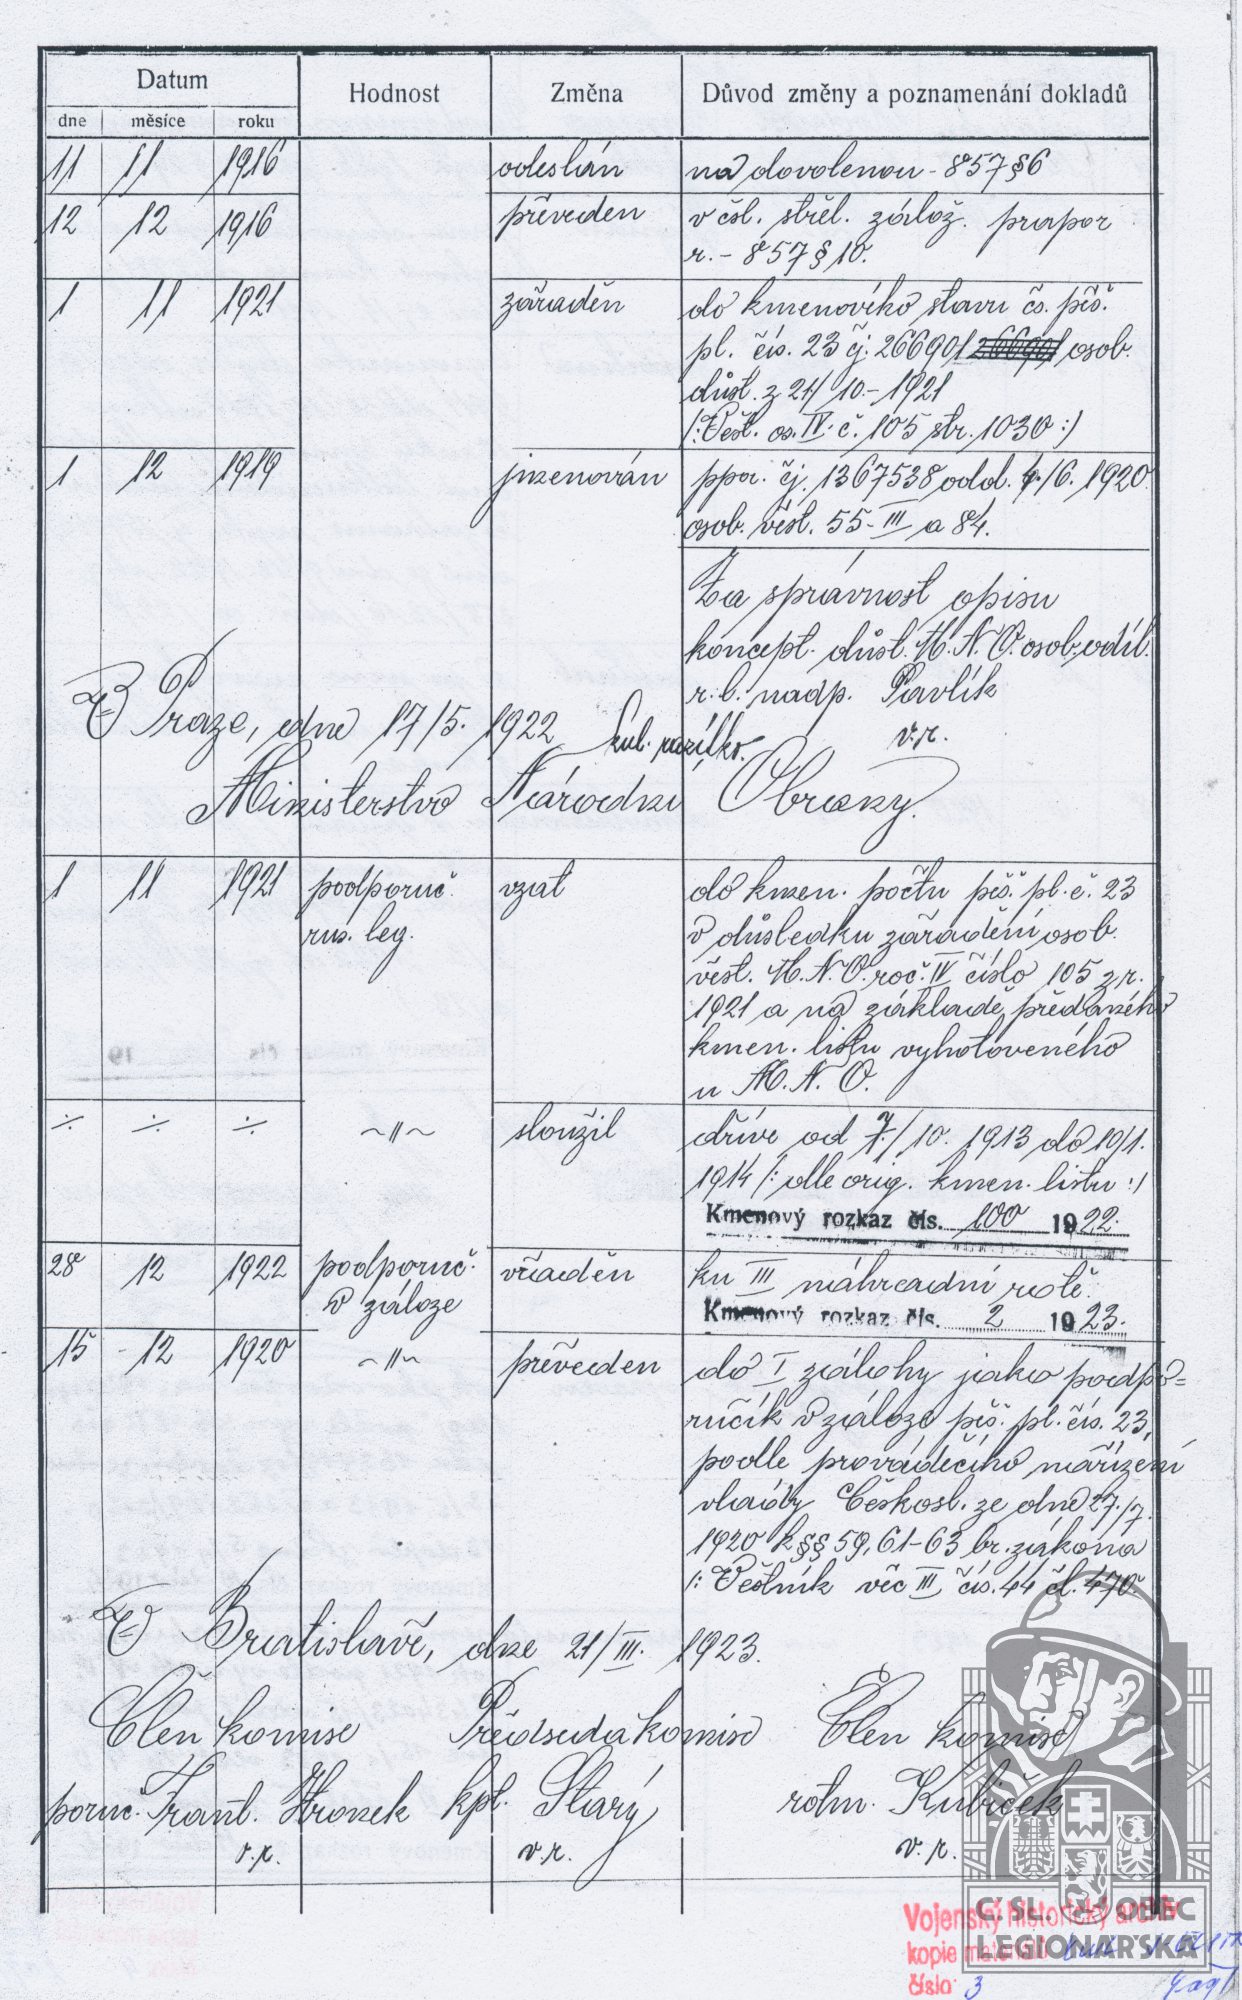 Datum Hodnost Změna Důvod změny a poznamenání dokladů
dne měsíce roku
11 11 1916 odeslán na dovolenou - 857 § 6
12 12 1916 převeden v čsl. střel. zálož. prapor
r. - 857 § 10.
1 11 1921 zařaděn do kmenového stavu čs. pěš.
pl. čís. 23 čj. 26690/ osob.
důst. z 24/10. - 1921
/: Věst. os. IV. č. 105 str. 1030 :/
1 12 1919 jmenován ppor. čj. 1367538 odd. 4./6. 1920
osob. věst. 55 - III a 84.
Za správnost opisu
koncept. důst. M. N. O. osob. odděl.
r. l. nadp. Pavlík
v. r.
V Praze, dne 17/5. 1922 kul. razítko.
Ministerstvo Národní Obrany.
1 11 1921 podporuč. vzat do kmen. počtu pěš. pl. č. 23
rus. leg. v důsledku zařadění osob.
věst. M. N. O. roč. IV číslo 105 z r.
1921 a na základě předaného
kmen. listu vyhotoveného
u M. N. O.
÷ ÷ ÷ ~ " ~ sloužil dříve od 7./10. 1913 do 10/1.
1914 /: dle orig. kmen. listu :/
Kmenový rozkaz čís. 100 1922.
28 12 1922 podporuč. vřaděn ku III náhradní rotě.
v záloze
Kmenový rozkaz čís. 2 1923.
15 12 1920 ~ " ~ převeden do I zálohy jako podpo=
ručík v záloze pěš. pl. čís. 23,
podle prováděcího nařízení
vlády Českosl. ze dne 27./7.
1920 k §§ 59, 61-63 br. zákona
/: Věstník věc III čís. 44 čl. 470.
V Bratislavě, dne 21/III. 1923.
Člen komise Předseda komise Člen komise
poruč. Frant. Hronek kpt. Starý rotm. Kubíček
v. r. v. r. v. r.
Č'SL. OBEC
LEGIONÁŘSKÁ
Vojenský historický archiv
kopie materiálů
číslo 3